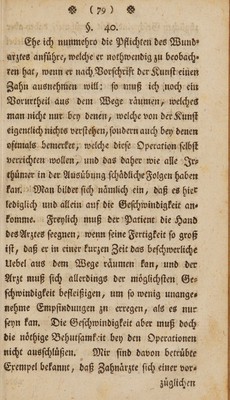 (79)
§. 40.
Ehe ich nunmehro die Pflichten des Wund-
arztes anführe, welche er nothwendig zu beobach-
ten hat, wenn er nach Vorschrift der Kunst einen
Zahn ausnehmen will: so muß ich noch ein
Vorurtheil aus dem Wege räumen, welches
man nicht nur bey denen, welche von der Kunst
eigentlich nichts verstehen, sondern auch bey denen
oftmals bemerket, welche diese Operation selbst
verrichten wollen, und das daher wie alle Irr-
thümer in der Ausübung schädliche Folgen haben
kan. Man bildet sich nämlich ein, daß es hie-
lediglich und allein auf die Geschwindigkeit an-
komme. Freylich muß der Patient die Hand
des Arztes segnen, wenn seine Fertigkeit so groß
ist, daß er in einer kurzen Zeit das beschwerliche
Uebel aus dem Wege räumen kan, und der
Arzt muß sich allerdings der möglichsten Ge-
schwindigkeit befleißigen, um so wenig unange-
nehme Empfindungen zu erregen, als es nur
seyn kan. Die Geschwindigkeit aber muß doch
die nöthige Behutsamkeit bey den Operationen
nicht ausschlüßen. Mir sind davon betrübte
Exempel bekannt, daß Zahnärzte sich einer vor-
züglichen